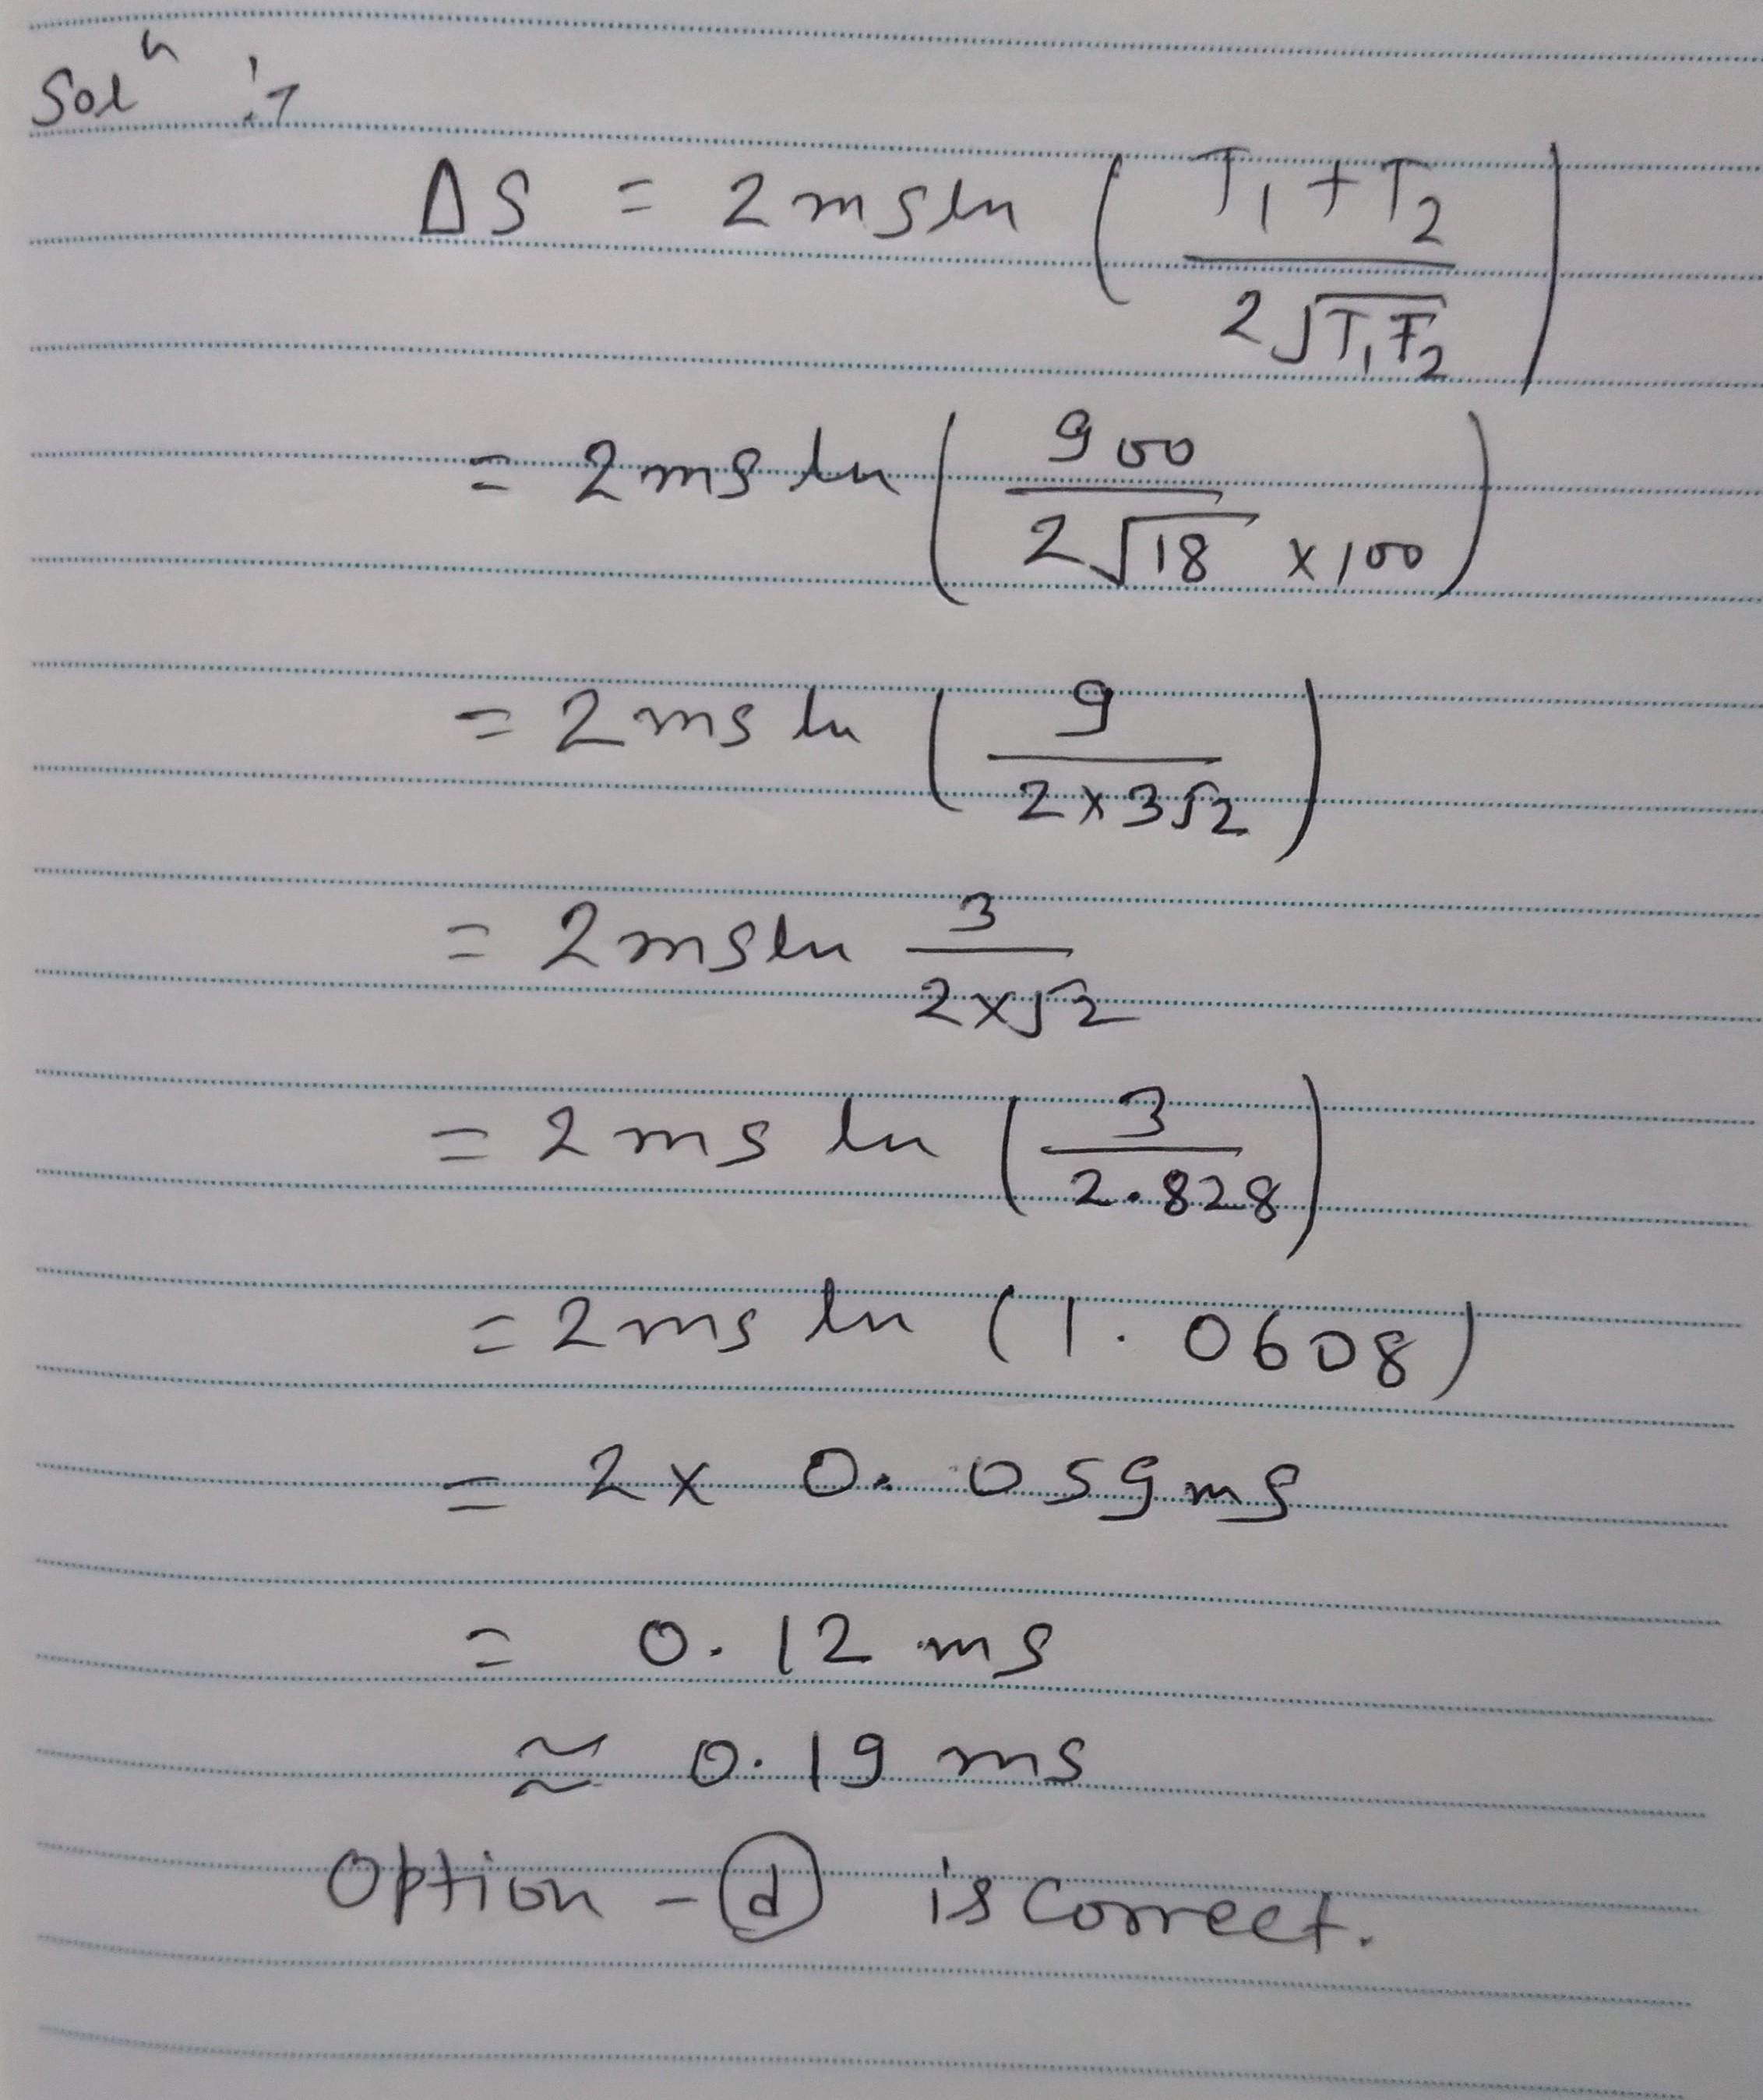 Solⁿ :-
ΔS = 2 ms ln ( T₁ + T₂ / 2√T₁T₂ )
= 2 ms ln ( 900 / 2√18 × 100 )
= 2 ms ln ( 9 / 2×3√2 )
= 2 ms ln 3 / 2×√2
= 2 ms ln ( 3 / 2.828 )
= 2 ms ln ( 1.0608 )
= 2 × 0.059 ms
= 0.12 ms
≅ 0.19 ms
Option - (d) is correct.